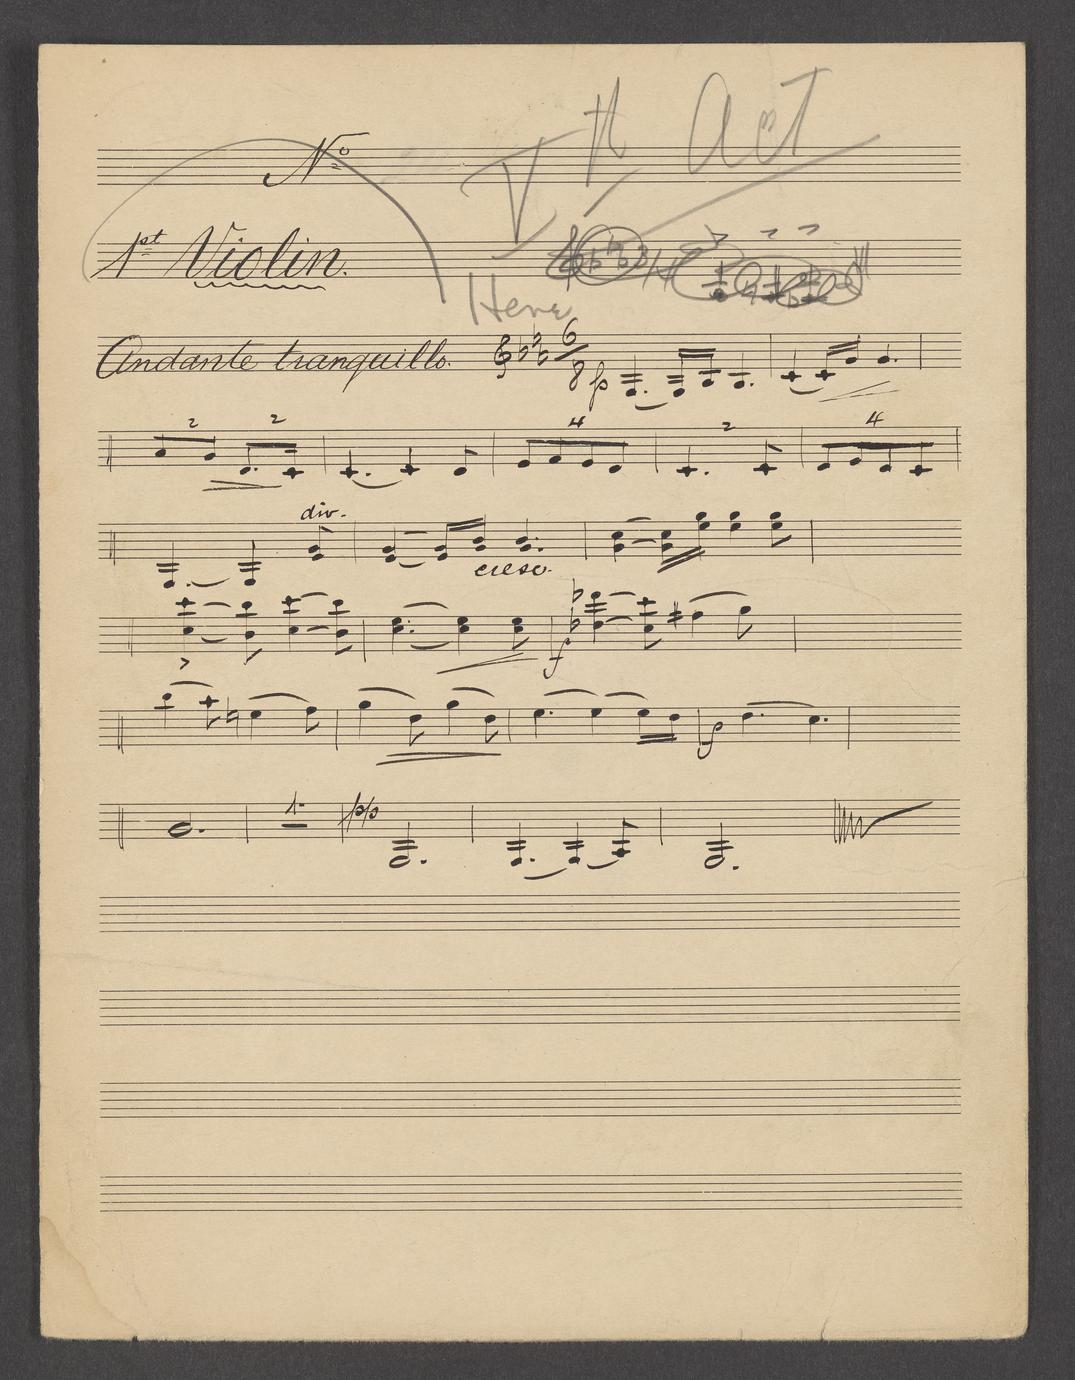 Vth Act
No
1st Violin.
Here
Andante tranquillo. 6/8 p
2 2 4 2 4
div.
cresc.
f
p
1 pp